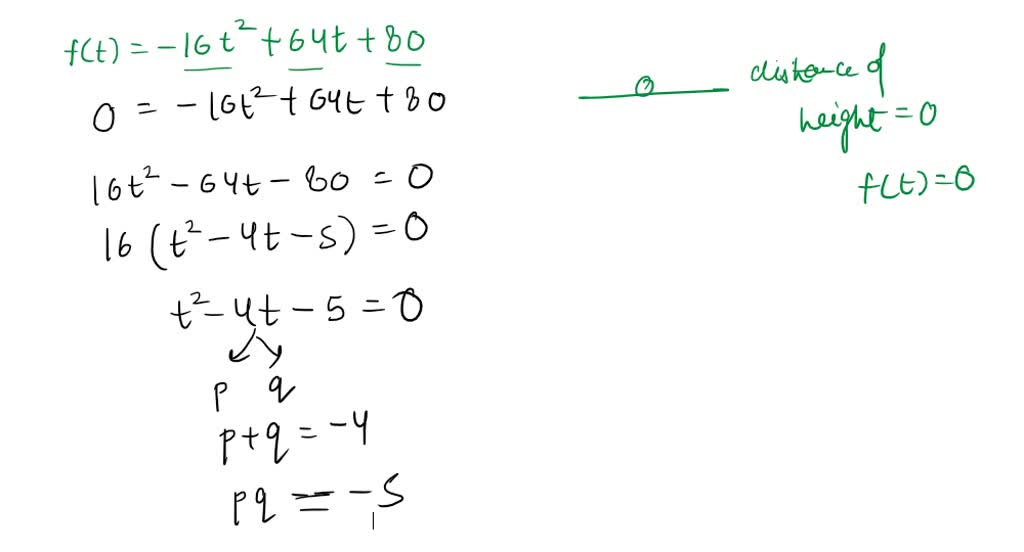 f(t) = -16t² + 64t + 80
0 = -16t² + 64t + 80
16t² - 64t - 80 = 0
16 (t² - 4t - 5) = 0
t² - 4t - 5 = 0
p q
p + q = -4
pq = -5
0 distance of
height = 0
f(t) = 0